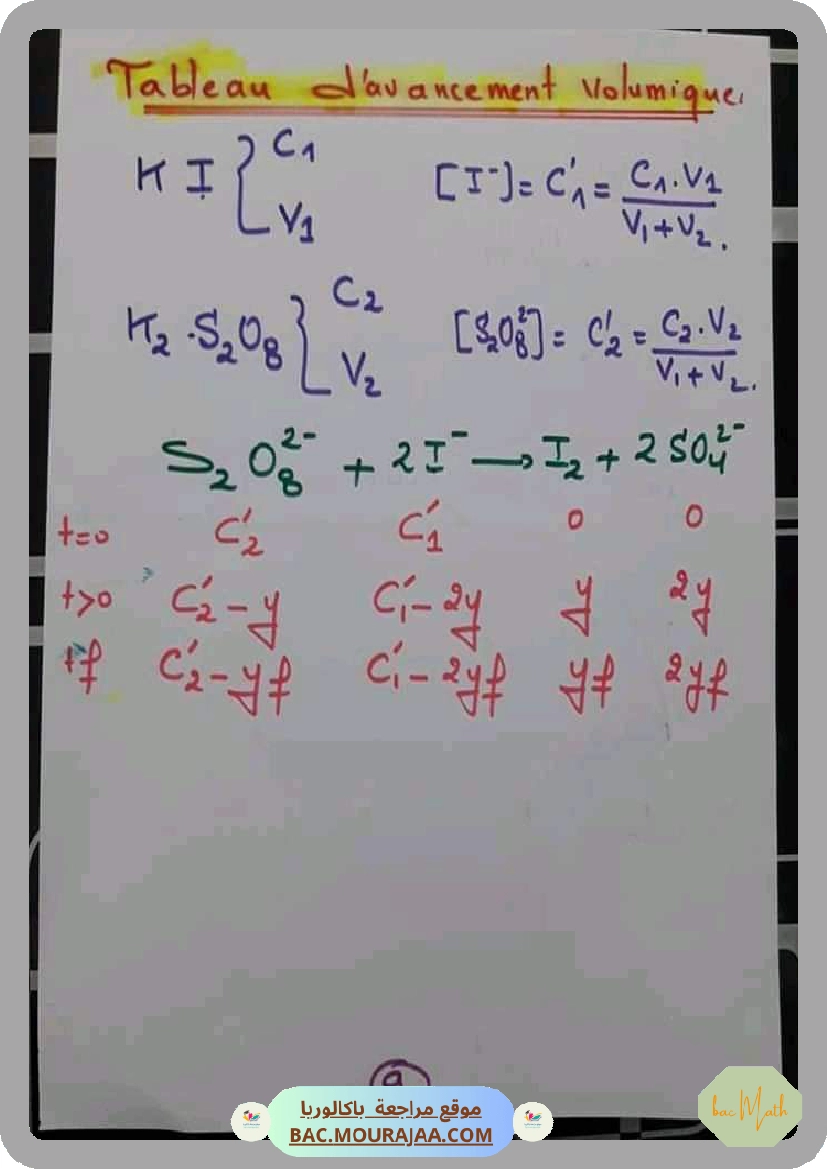 Tableau d'avancement volumique.
KI { C1 V1 [I⁻] = C'1 = C1.V1 / V1+V2.
K2.S2O8 { C2 V2 [S2O8²⁻] = C'2 = C2.V2 / V1+V2.
S2O8²⁻ + 2I⁻ → I2 + 2SO4²⁻
t=0 C'2 C'1 0 0
t>0 C'2-y C'1-2y y 2y
tf C'2-yf C'1-2yf yf 2yf
9
موقع مراجعة باكالوريا
BAC.MOURAJAA.COM
bac Math